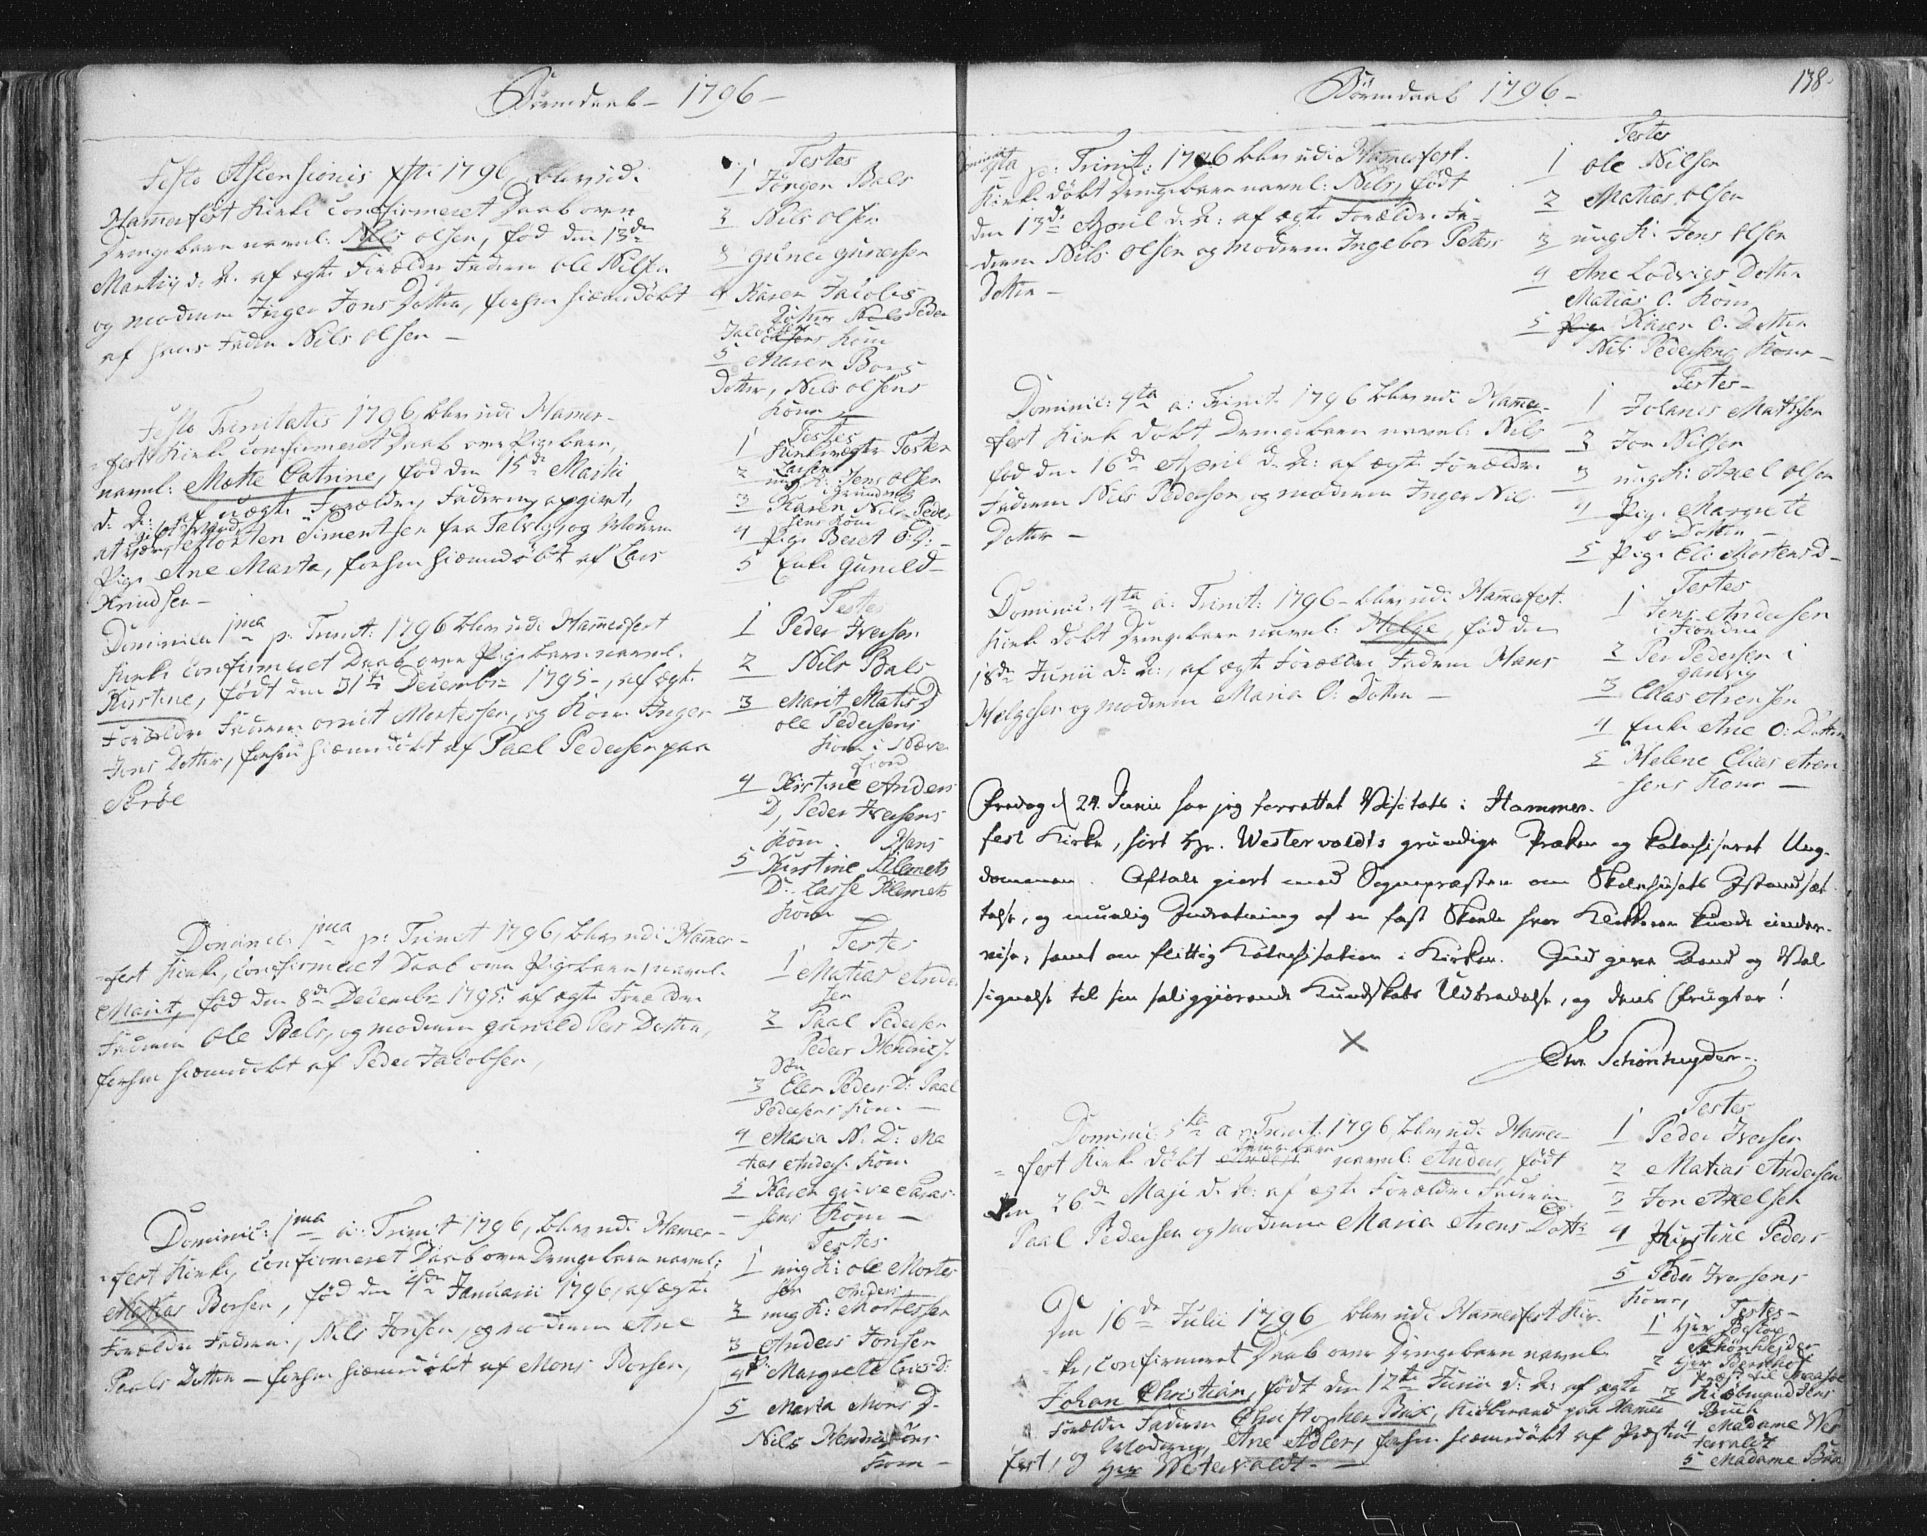 Børnedaab - 1796 -
Festo Asscensionis xsti 1796, blev udi
Hamerfest Kirke confirmeret Daab over
Drengebarn navnl: Nils Olsen, fød den 13de
Martij d: A. af ægte Forældre Faderen Ole Nilsen
og moderen Inger Jons Datter, forhen hiemedøbt
af hans Fader Nils Olsen -
Testes
1 Jørgen Bals
2 Nils Olsen
3 Guner Gunersen
4 Karen Jacobs
Datter Nils Peder
Jacobsens Kone
5 Maren Bors
Datter, Nils Olsens
Kone
Festo Trinitatis 1796, blev udi Hamer-
fest Kirke confirmeret Daab over Pigebarn,
navnl: Mette Catrine, fød den 15de Martii
d: A: af uægte Forældre, Faderen angivet,
at være Morten Simentsen fra Talvig, og Moderen
Pige Ane Marta, forhen hiemedøbt af Lars
Knudsen -
Testes
1 Kirkeværger Tosten
Larsen
2 ungK: Jens Olsen
i Grundvog
3 Karen Nils Peder
sens Kone
4 Pige Beret O:D: -
5 Enke Gunild -
Dominica 1ma p: Trinit: 1796 blev udi Hamerfest
Kirke confirmeret Daab over Pigebarn navnl.
Kirstine, født den 31te Decembr 1795 -, af ægte
Forældre Faderen Omit Mortessen, og Kone Inger
Jens Datter, forhen hiemedøbt af Paal Pedersen paa
Sørøe
Testes
1 Peder Iversen
2 Nils Bals
3 Marit Matis D
Ole Pedersens
Kone i Næver
fiord
4 Kirstine Anders
D, Peder Iversens
Kone. Hans
5 Kirstine Klemets
D: Lasse Klemets
Kone
Dominic: 1ma p: Trinit 1796, blev udi Hamer-
fest Kirke, confirmeret Daab over Pigebarn, navnl.
Marit, fød den 8de Decembr 1795 af ægte Forældre
Faderen Ole Bals, og moderen Gunild Pers Datter,
forhen hiemedøbt af Peder Jacobsen,
Testes
1 Matias Ander
sen
2 Paal Pedersen
Peder Hendrichs.
Søn
3 Elen Peders D: Paal
Pedersens Kone -
4 Maria N: D: Ma
tias Anders: Kone
5 Karen
sens Kone -
Dominic: 1ma a: Trinit 1796, blev udi Hamer-
fest Kirke, confirmeret Daab over Drengebarn navnl:
Matias Borsen, fød den 4de Januarii 1796, af ægte
Forældre Faderen, Nils Jonsen, og moderen Ane
Poels Datter - forhen hiemedøbt af Mons Borsen,
Testes
1 ungK: Ole Mortes
sen Anders
2 ungK: Mortessen
3 Anders Jonsen
4 Margrete Erics D:
5 Marta Mons D.
Nils Hendrichsens
Kone -
Børnedaab 1796 -
138.
Dominic 3tia p: Trinit: 1796 blev udi Hamerfest.
Kirke døbt Drengebarn navnl: Nils, født
den 13de April d. A: af ægte Forældre Fa-
deren Nils Olsen og moderen Ingebor Peters
Datter -
Testes
1 Ole Nilsen
2 Matias Olsen
3 ungK: Jens Olsen
4 Ane Lodvigs Datter
Matias O. Kone
5 Pige Karen O. Datter
Nils Pedersens Kone -
Dominic: 4ta a: Trinit. 1796 blev udi Hamer-
fest Kirke døbt Drengebarn navnl: Nils
fød den 16de April d. A: af ægte Forældre
Faderen Nils Pedersen og moderen Inger Nils
Datter -
Testes -
1 Johanes Mattisen
2 Jon Nilsen
3 ungK: Axel Olsen
4 Pige Margrete
O: Datter -
5 Pige Eli Mortens D -
Dominic. 4ta a: Trinit: 1796 - blev udi Hamerfest.
Kirke døbt Drengebarn navnl: Helge, fød den
18de Junii d: A: af ægte Forældre Faderen Hans
Helgesen og moderen Maria O: Datter -
Testes
1 Jens Andersen
i Fiorden
2 Per Pedersen i
Ganvig
3 Elias Arensen
4 Enke Ane O: Datter
5 Helene Elias Aren
sens Kone -
Fredag d 24. Junii har jeg forrettet Visitats i Hammer-
fest Kirke, hørt Hr. Westervoldts grundige Præken og katechiseret Ung-
dommen. Aftale giort med Sognepræsten om Skolehusets Istandsæt-
telse, og muelig Indretning af en fast Skole hvor Klokkeren kunde under-
vise, samt om flittig Katechisation i Kirken. Gud give Land og Vel
signelse til sin saliggiørende Kundskabs Udbredelse, og dens Frugter!
Chr. Schönheyder.
Dominic: 5te a Trinit: 1796, blev udi Hamer-
fest Kirke døbt Drengebarn navnl: Anders, født
den 26de Maji d. A: af ægte Forældre Faderen
Paal Pedersen og moderen Maria Arens Datt:
Testes
1 Peder Iversen
2 Matias Andersen
3 Jon Axelsen
4 Kirstine Peders
5 Peder Iversens
Kone,
Den 16de Julii 1796 blev udi Hamerfest Kir-
ke, confirmeret Daab over Drengebarn navnl:
Johan Christian, født den 12te Junii d: A: af ægte
Forældre Faderen Christopher Buck, Kiøbmand paa Hamer
fest, og Moderen, Ane Adler, forhen hiemedøbt af Præsten
Herr Westervoldt -
Testes -
1 Herr Bistop
Schønheyder
2 Herr Berchhof
Præst til Maasøe
3 Kiøbmand Jens
Buck
4 Madame Wes
tervoldt
5 Madame Buck